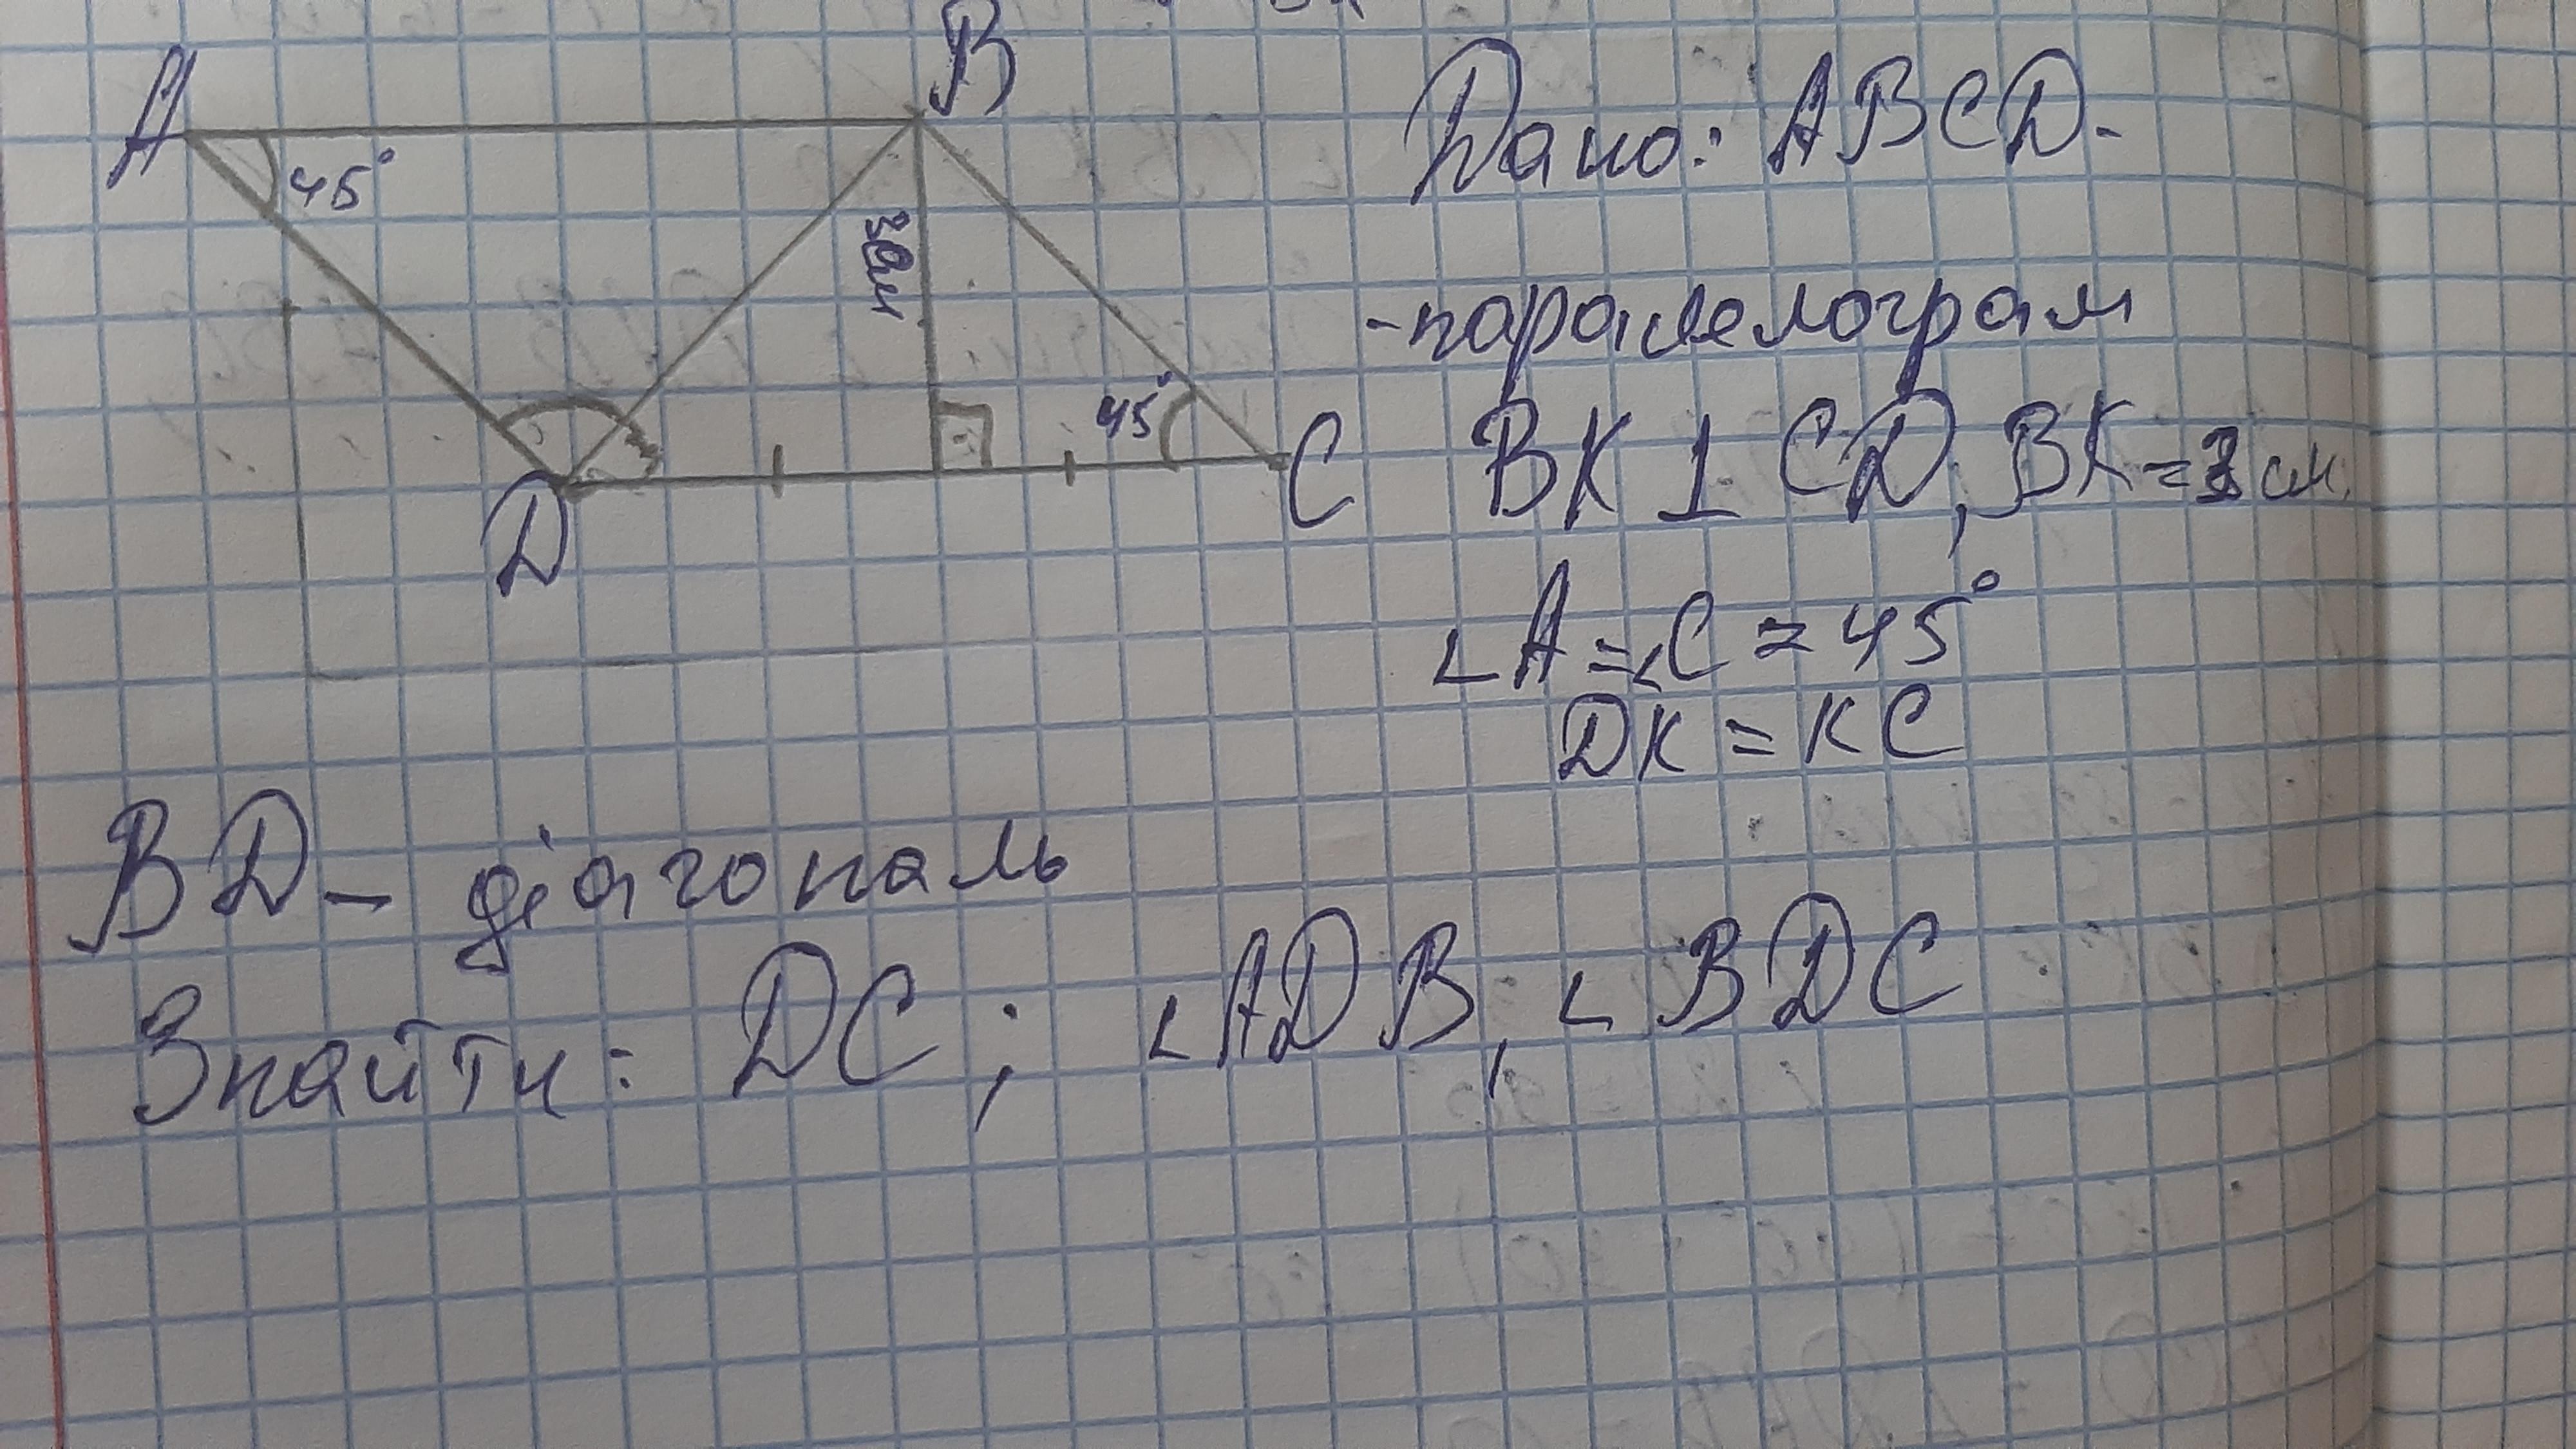 A
B
45°
3см
45°
D
C
Дано: ABCD-
-паралелограм
BK ⊥ CD, BK = 3 см.
∠A = ∠C = 45°
DK = KC
BD – діагональ
Знайти: DC; ∠ADB, ∠BDC